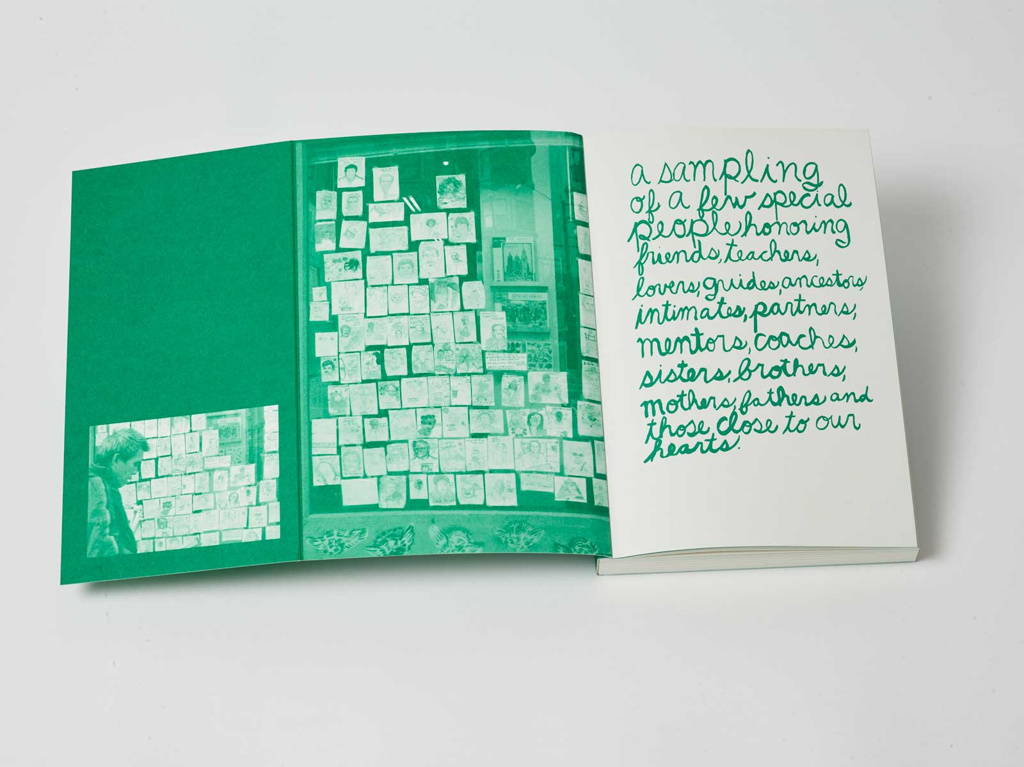 a sampling
of a few special
people honoring
friends, teachers,
lovers, guides, ancestors,
intimates, partners,
mentors, coaches,
sisters, brothers,
mothers, fathers and
those close to our
hearts.